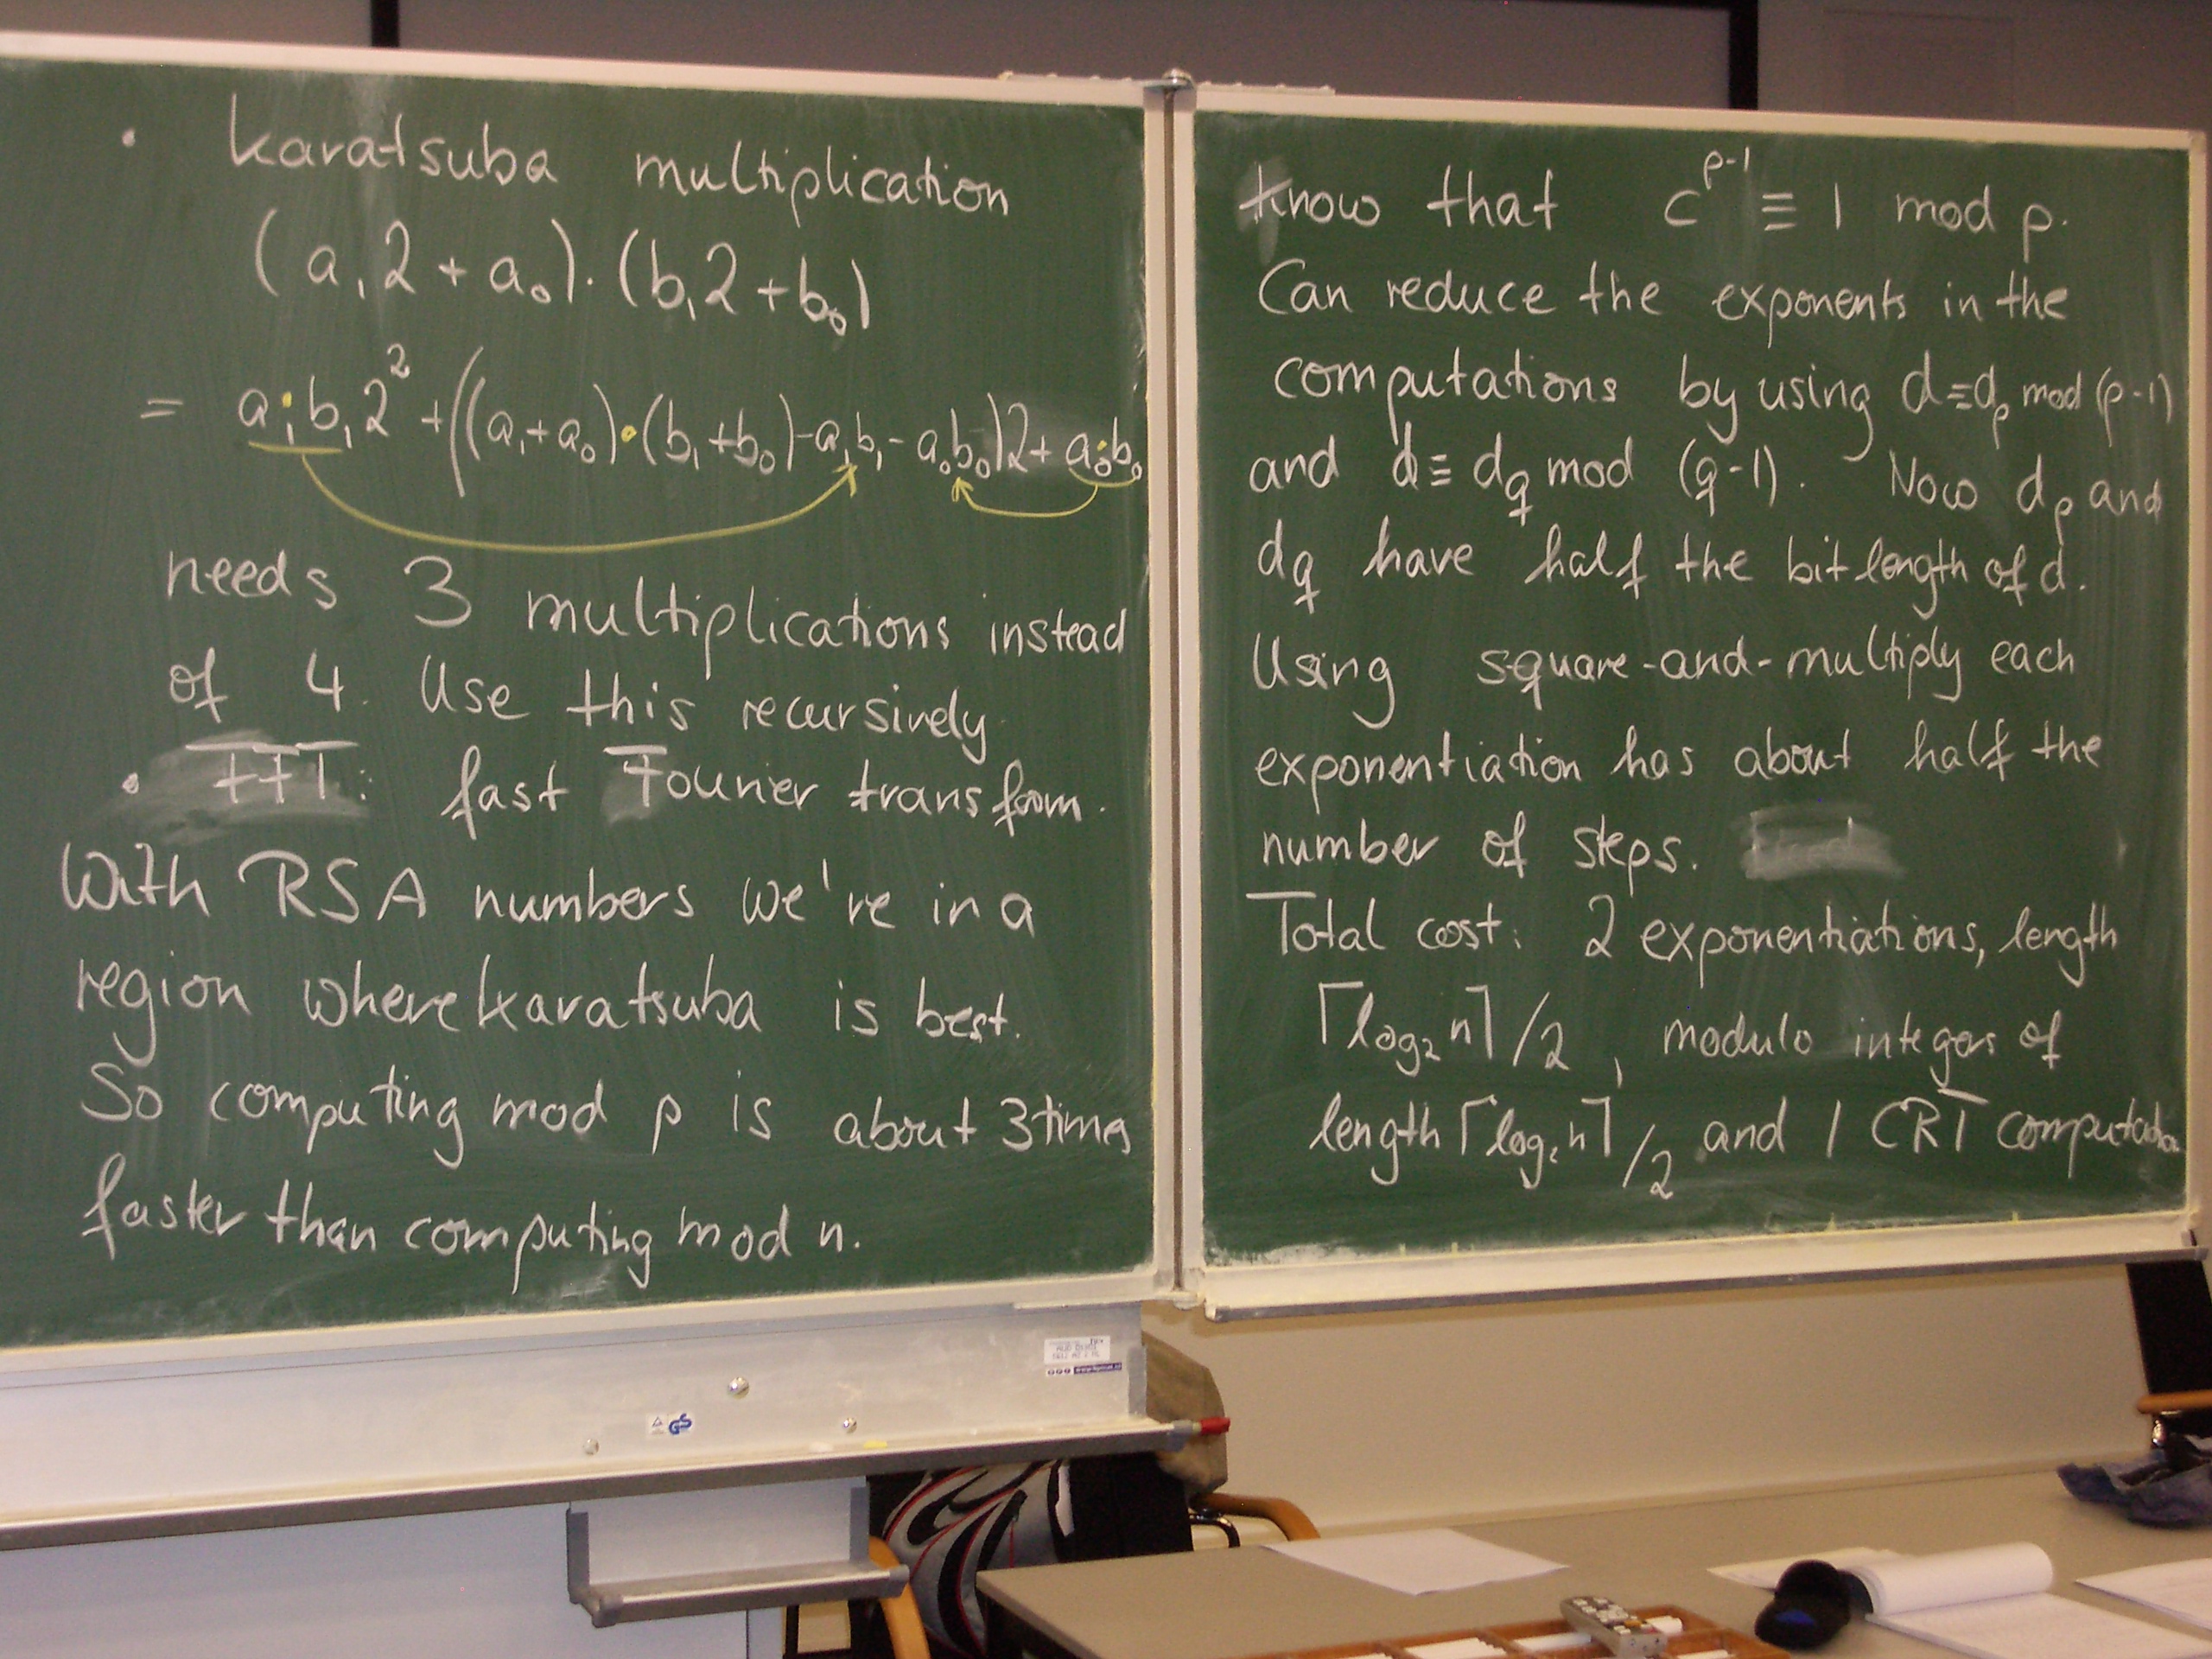 • Karatsuba multiplication
(a₁2 + a₀)·(b₁2 + b₀)
= a₁·b₁2² + ((a₁+a₀)•(b₁+b₀)-a₁b₁-a₀b₀)2+a₀·b₀
needs 3 multiplications instead
of 4. Use this recursively
• FFT: fast Fourier transform.
With RSA numbers we're in a
region where Karatsuba is best.
So computing mod p is about 3 times
faster than computing mod n.
Know that c^{p-1} ≡ 1 mod p.
Can reduce the exponents in the
computations by using d≡d_p mod (p-1)
and d≡ d_q mod (q-1). Now d_p and
d_q have half the bit length of d.
Using square-and-multiply each
exponentiation has about half the
number of steps.
Total cost: 2 exponentiations, length
⌈log₂ n⌉/2, modulo integers of
length ⌈log₂ n⌉/2 and 1 CRT computation